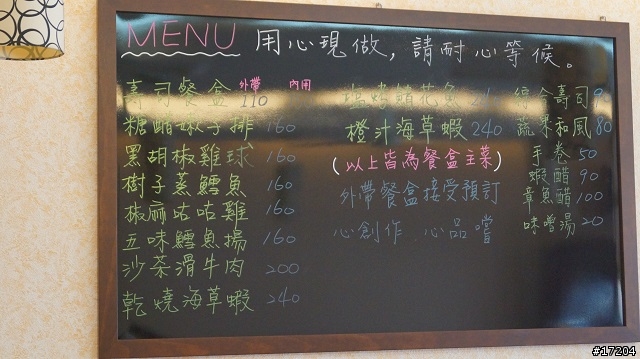 MENU 用心現做,請耐心等候。
外帶 內用
壽司餐盒 110
糖醋 子排 160
黑胡椒雞球 160
樹子蒸鱈魚 160
椒麻咕咕雞 160
五味鱈魚揚 160
沙茶滑牛肉 200
乾燒海草蝦 240
鹽烤鯖花魚
橙汁海草蝦 240
(以上皆為餐盒主菜)
外帶餐盒接受預訂
心創作 心品嚐
綜合壽司
蔬果和風 80
手卷 50
蝦醋 90
章魚醋 100
味噌湯 20
#17204